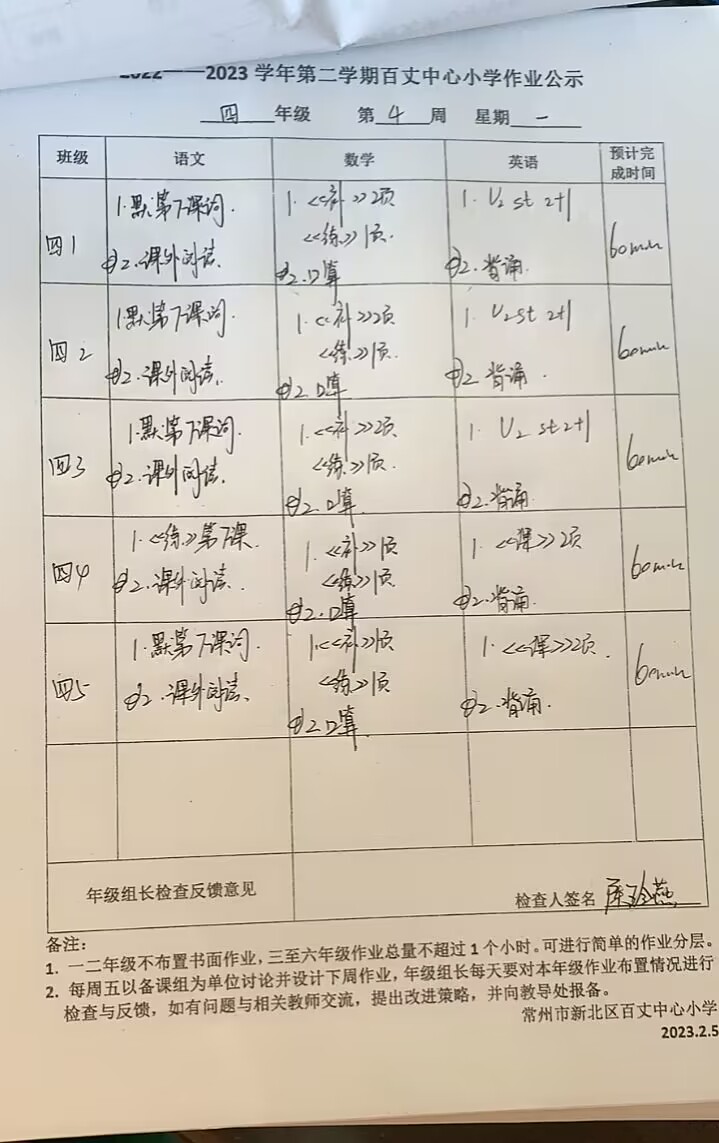 2022——2023 学年第二学期百丈中心小学作业公示
四 年级 第 4 周 星期 一
班级 语文 数学 英语 预计完成时间
四1 1.默第7课词. 1.《补》2页 1. U2 st 2+1 60min
《练》1页.
2.课外阅读. 2.口算 2.背诵
四2 1.默第7课词. 1.《补》2页 1. U2 st 2+1 60min
《练》1页.
2.课外阅读. 2.口算 2.背诵.
四3 1.默第7课词. 1.《补》2页 1. U2 st 2+1 60min
《练》1页.
2.课外阅读. 2.口算. 2.背诵.
四4 1.《练》第7课. 1.《补》1页 1.《课》2页 60min
《练》1页
2.课外阅读. 2.口算 2.背诵.
四5 1.默第7课词. 1.《补》1页 1.《课》2页. 60min
《练》1页
2.课外阅读. 2.口算. 2.背诵.
年级组长检查反馈意见 检查人签名
备注:
1. 一二年级不布置书面作业,三至六年级作业总量不超过 1 个小时。可进行简单的作业分层。
2. 每周五以备课组为单位讨论并设计下周作业,年级组长每天要对本年级作业布置情况进行
检查与反馈,如有问题与相关教师交流,提出改进策略,并向教导处报备。
常州市新北区百丈中心小学
2023.2.5